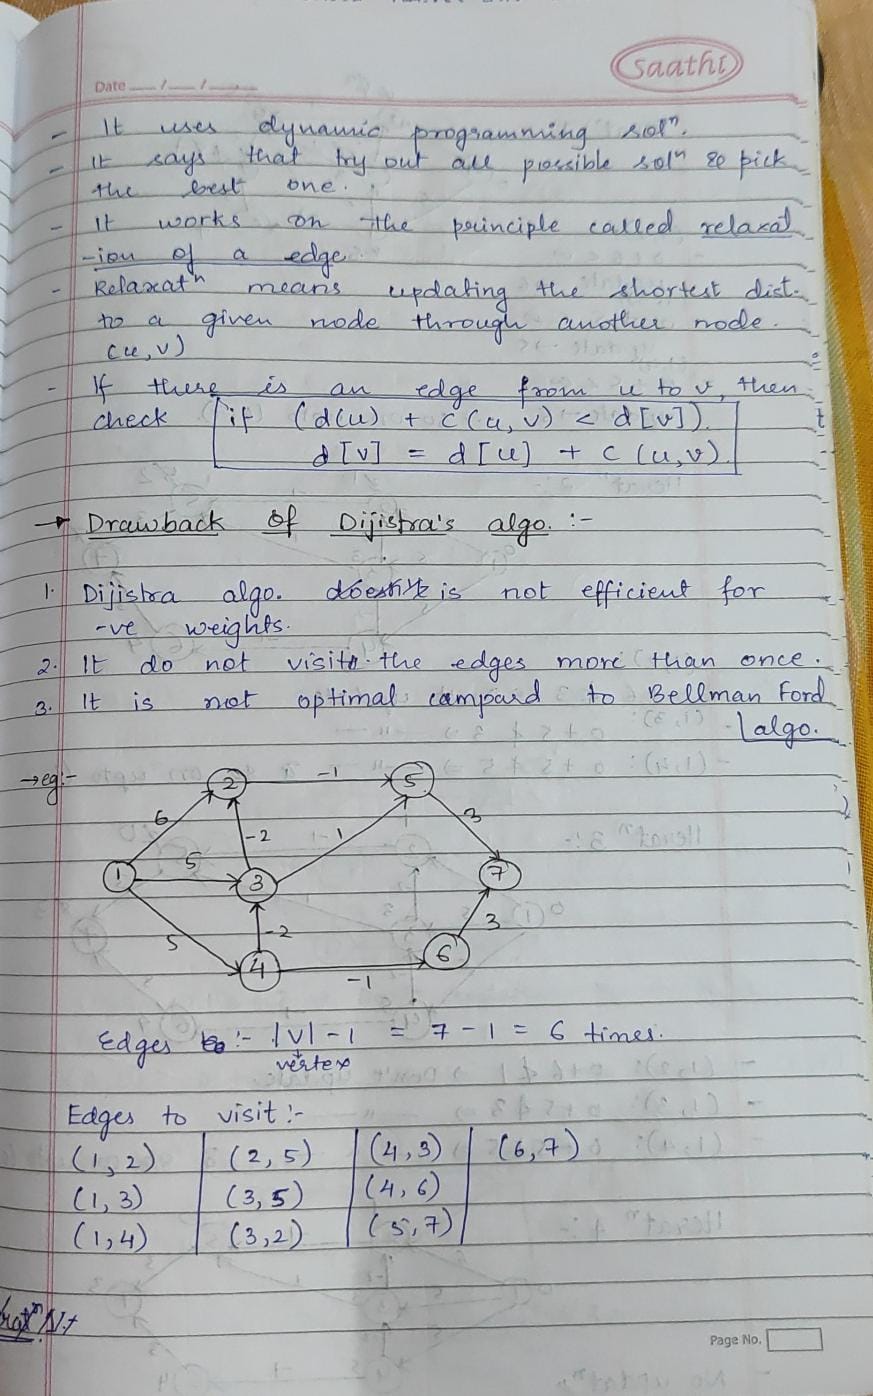 saathi
Date ___/___/______
- It uses dynamic programming solⁿ.
- It says that try out all possible solⁿ & pick
the best one.
- It works on the principle called relaxat
-ion of a edge.
- Relaxatⁿ means updating the shortest dist.
to a given node through another node.
(u,v)
- If there is an edge from u to v, then
check if (d(u) + c(u,v) < d[v])
d[v] = d[u] + c(u,v)
→ Drawback of Dijistra's algo. :-
1. Dijistra algo. is not efficient for
-ve weights.
2. It do not visit the edges more than once.
3. It is not optimal campaird to Bellman Ford
algo.
→ eg:-
2 -1 5
6 -2 1 3
1 5 3 7
5 -2 3
4 -1 6
Edges :- |V| - 1 = 7 - 1 = 6 times.
vertex
Edges to visit :-
(1,2) (2,5) (4,3) (6,7)
(1,3) (3,5) (4,6)
(1,4) (3,2) (5,7)
Page No.